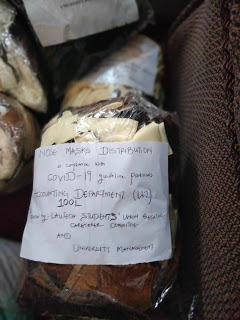 NOSE MASKS DISTRIBUTION
in compliance with
COVID-19 guideline
ACCOUNTING DEPARTMENT
100L
by LAUTECH STUDENTS' UNION
CARETAKER COMMITTEE
AND
UNIVERSITY MANAGEMENT